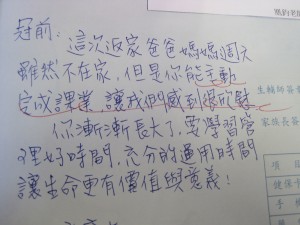 冠前：
這次返家爸爸媽媽週六
雖然不在家，但是你能主動
完成課業，讓我們感到很欣慰
你漸漸長大了，要學習管
理好時間，充分的運用時間
讓生命更有價值與意義！
生輔師簽
家族長簽
項
健保
手